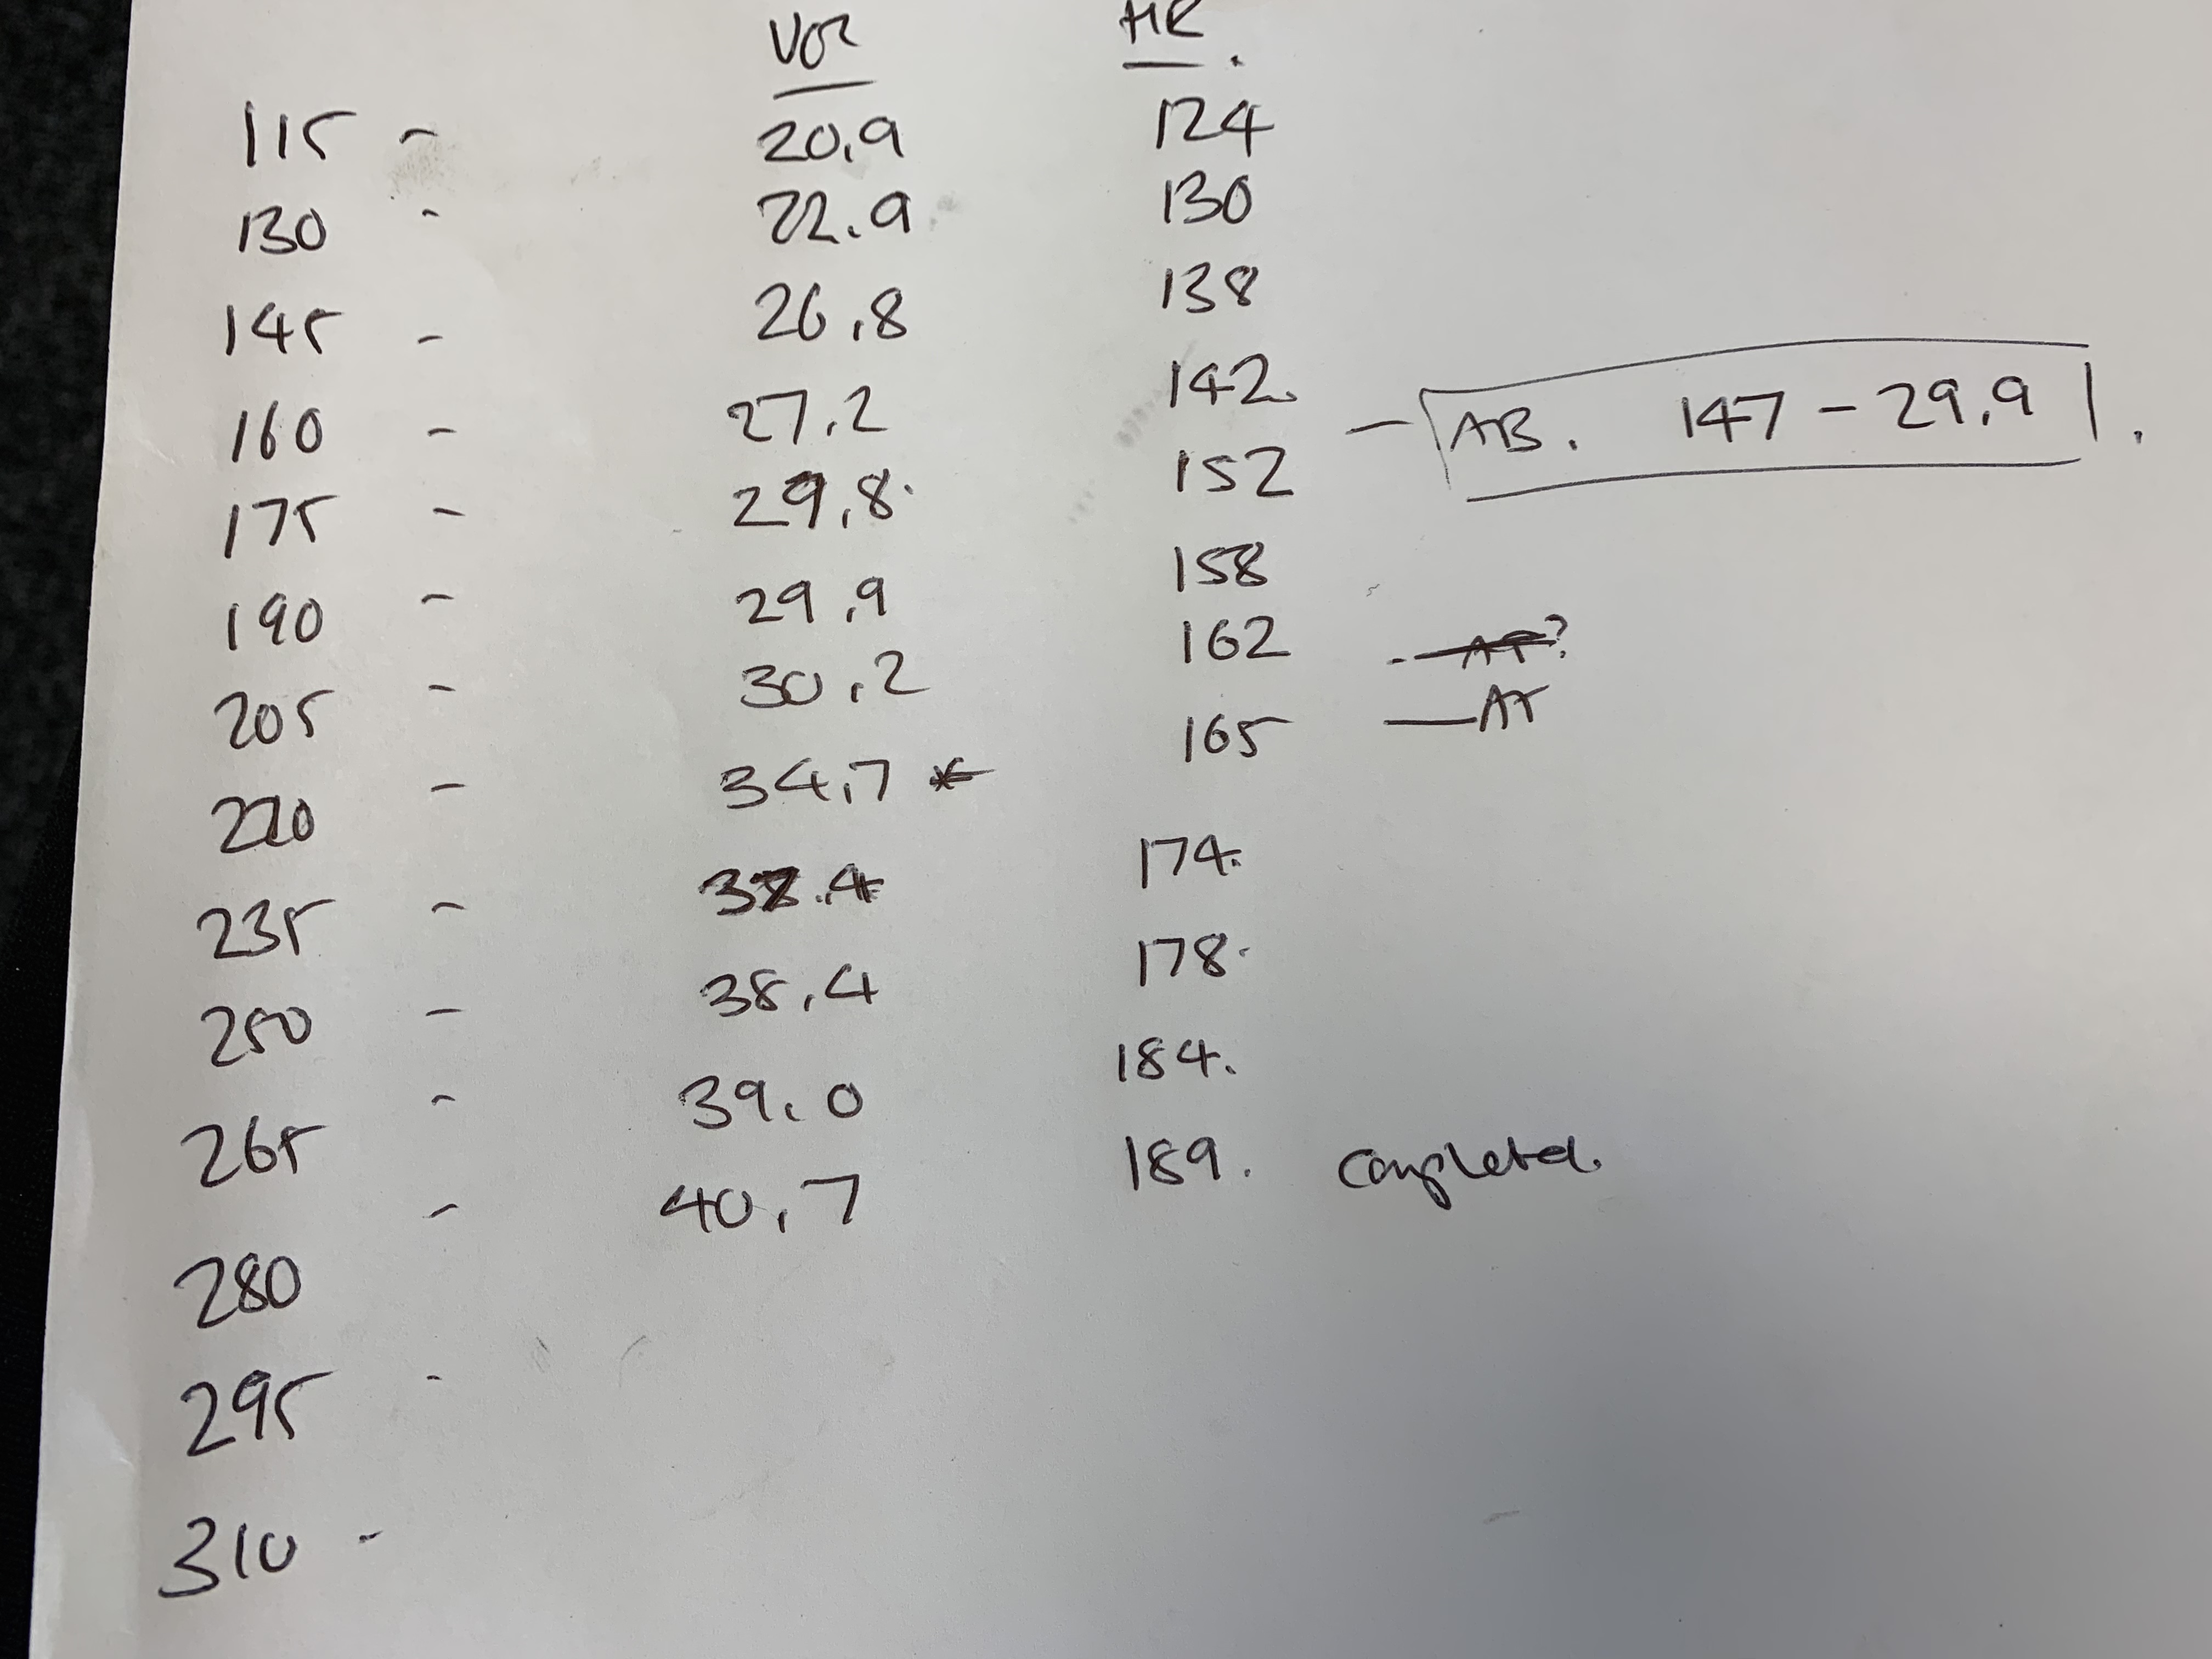 VO2 HR.
115 - 20.9 124
130 - 22.9 130
145 - 26.8 138
160 - 27.2 142. - AB. 147 - 29.9.
175 - 29.8 152
190 - 29.9 158
205 - 30.2 162 - ?
220 - 34.7 * 165 - AT
235 - .4 174.
250 - 38.4 178.
265 - 39.0 184.
- 40.7 189. completed.
280
295 -
310 -